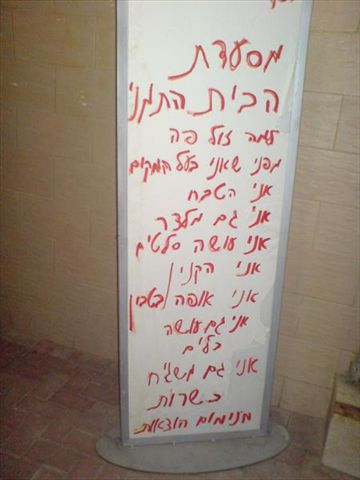 מסעדת
הבית התימני
למה זול פה
מפני שאני בעל המקום
אני הטבח
אני גם מלצר
אני עושה סלטים
אני הקניין
אני אופה בטבון
אני גם עושה
כלים
אני גם משגיח
כשרות
מנימום הוצאות